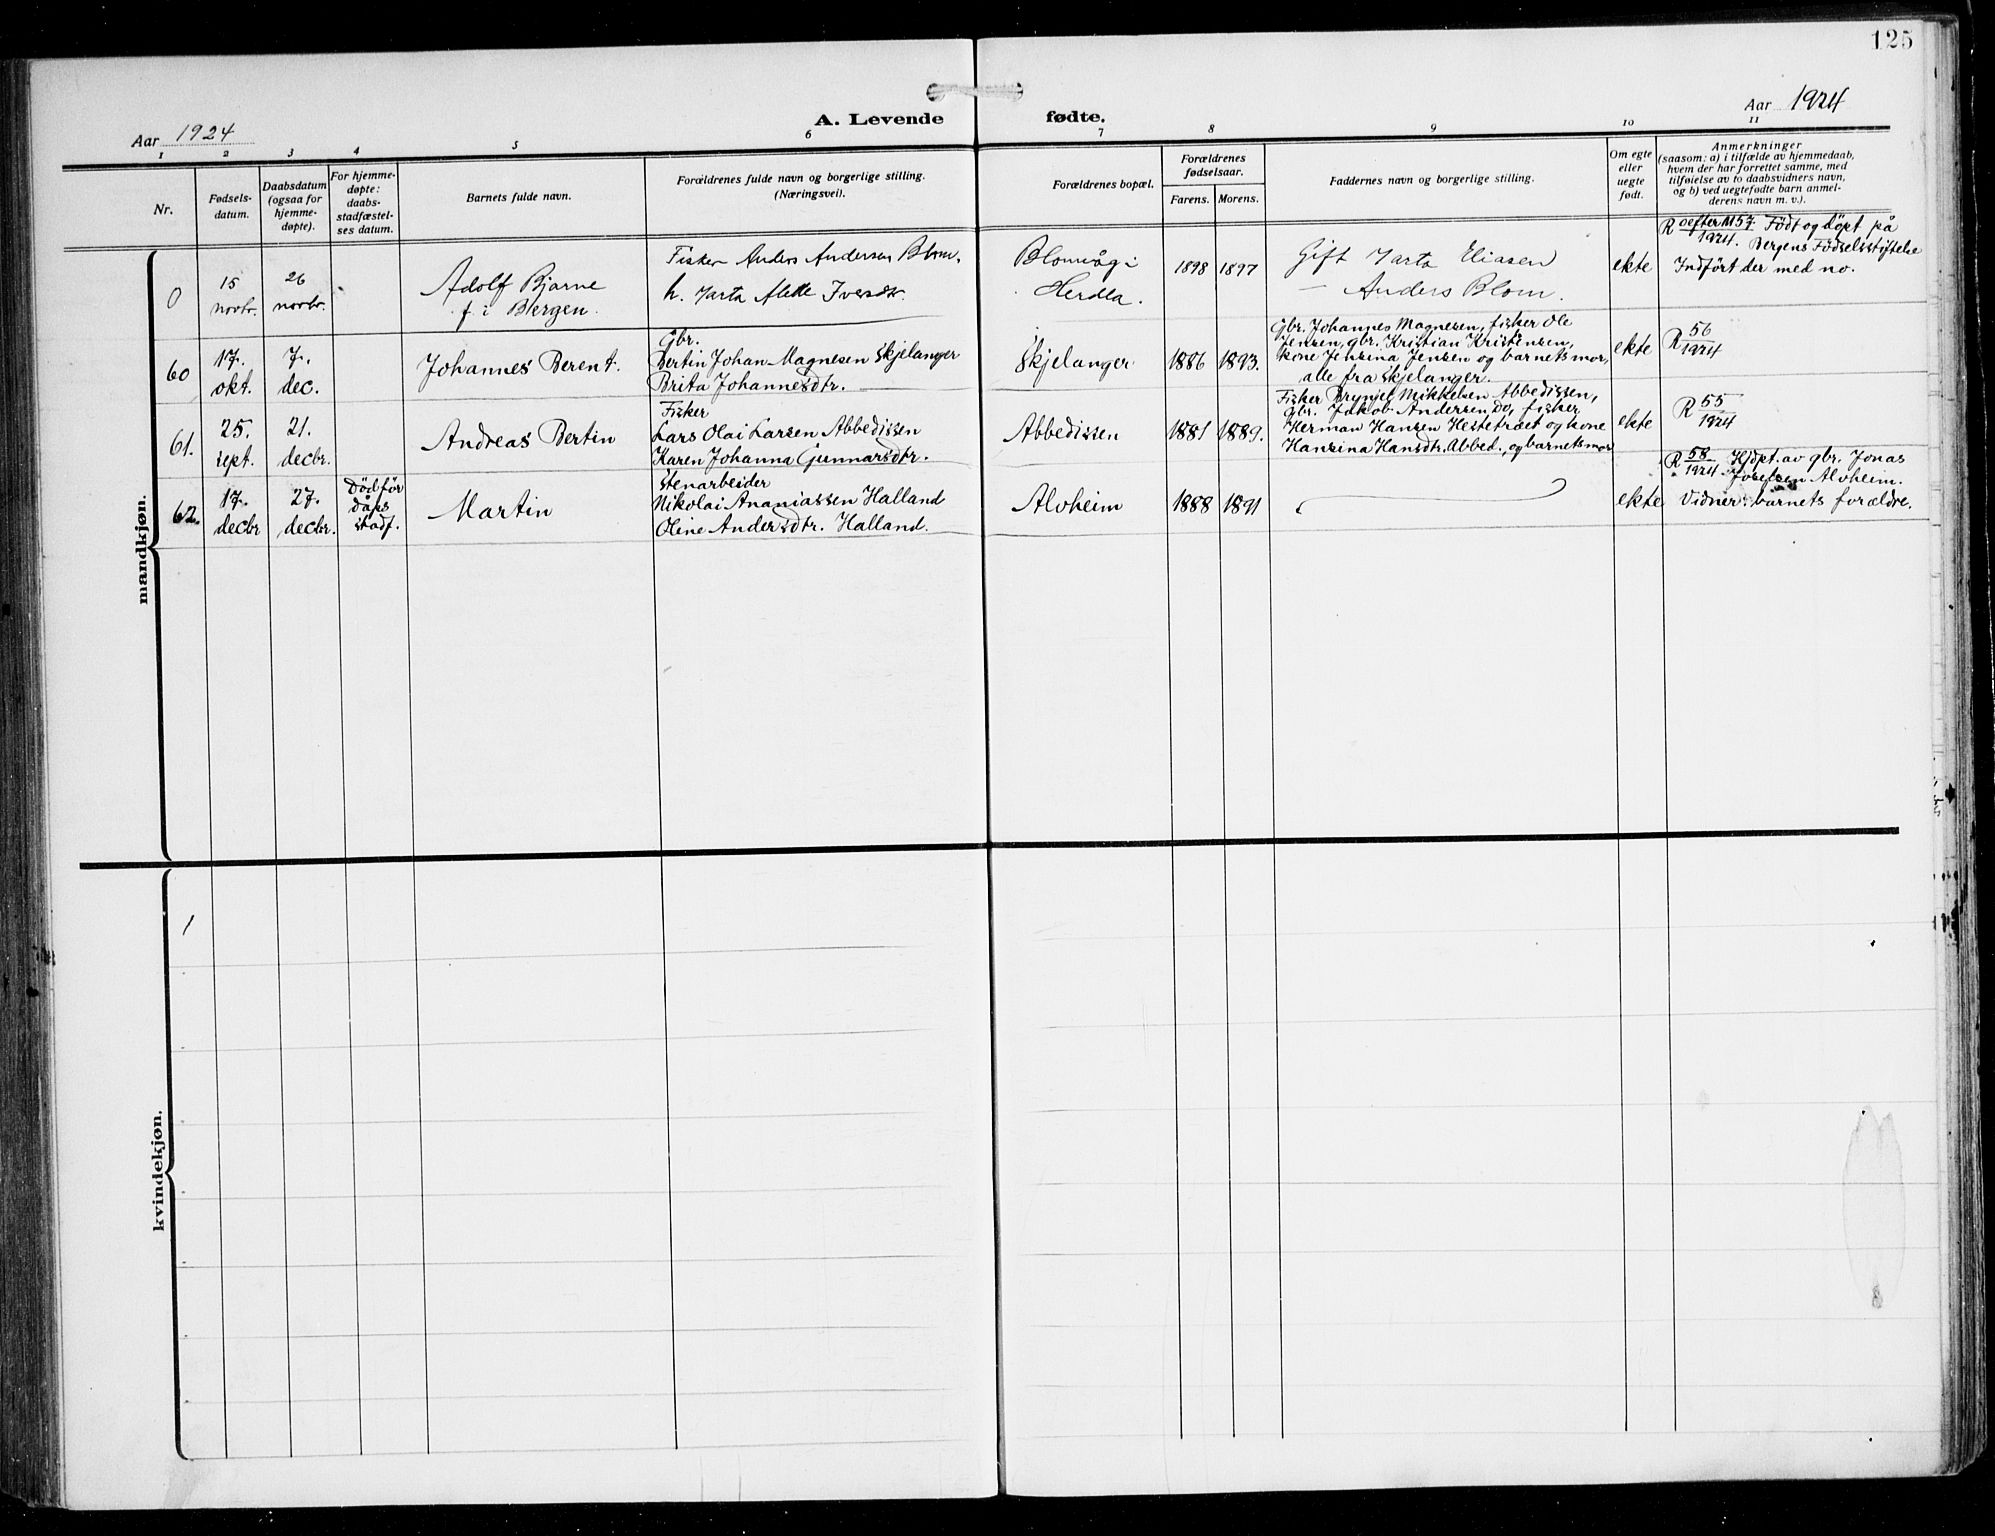 125
Aar 1924
A. Levende fødte.
Aar 1924
1 2 3 4 5 6 7 8 9 10 11
Nr.
Fødsels-
datum.
Daabsdatum
(ogsaa for
hjemme-
døpte).
For hjemme-
døpte:
daabs-
stadfæstel-
ses datum.
Barnets fulde navn.
Forældrenes fulde navn og borgerlige stilling.
(Næringsvei).
Forældrenes bopæl.
Forældrenes
fødselsaar.
Farens. Morens.
Faddernes navn og borgerlige stilling.
Om egte
eller
uegte
født.
Anmerkninger
(saasom: a) i tilfælde av hjemmedaab,
hvem der har forrettet samme, med
tilføielse av to daabsvidners navn,
og b) ved uegtefødte barn anmel-
derens navn m. v.).
mandkjøn.
0
15
novbr.
26
novbr.
Adolf Bjarne
f. i Bergen.
Fisker Anders Andersen Blom.
h. Marta Alette Iversdtr.
Blomvåg i
Herdla.
1898 1897
Gift Marta Eliasen
— Anders Blom.
ekte
R oefter M 57
1924. Født og døpt på
Bergens Fødselsstiftelse
Indført der med no.
60
17.
okt.
7.
dec.
Johannes Berent.
Gbr.
Bertin Johan Magnesen Skjelanger
Brita Johannesdtr.
Skjelanger
1886 1893.
Gbr. Johannes Magnesen, fisker Ole
Jensen, gbr. Kristian Kristensen,
kone Jensina Jensen og barnets mor,
alle fra Skjelanger.
ekte
R 56
1924
61.
25.
sept.
21.
decbr.
Andreas Bertin
Fisker
Lars Olai Larsen Abbedissen
Karen Johanna Gunnarsdtr.
Abbedissen
1881 1889.
Fisker Brynjel Mikkelsen Abbedissen,
gbr. Jakob Andersen Do, fisker
Herman Hansen Hestetræet og kone
Hansina Hansdtr. Abbed., og barnets mor
ekte
R 55
1924
62.
17.
decbr
27.
decbr.
Død før
dåps
stadf.
Martin
Stenarbeider
Nikolai Ananiassen Halland
Oline Andersdtr. Halland.
Alvheim
1888 1891
ekte
R 58
1924 Hjdpt. av gbr. Jonas
Josefsen Alvheim.
Vidner: barnets forældre.
kvindekjøn.
1